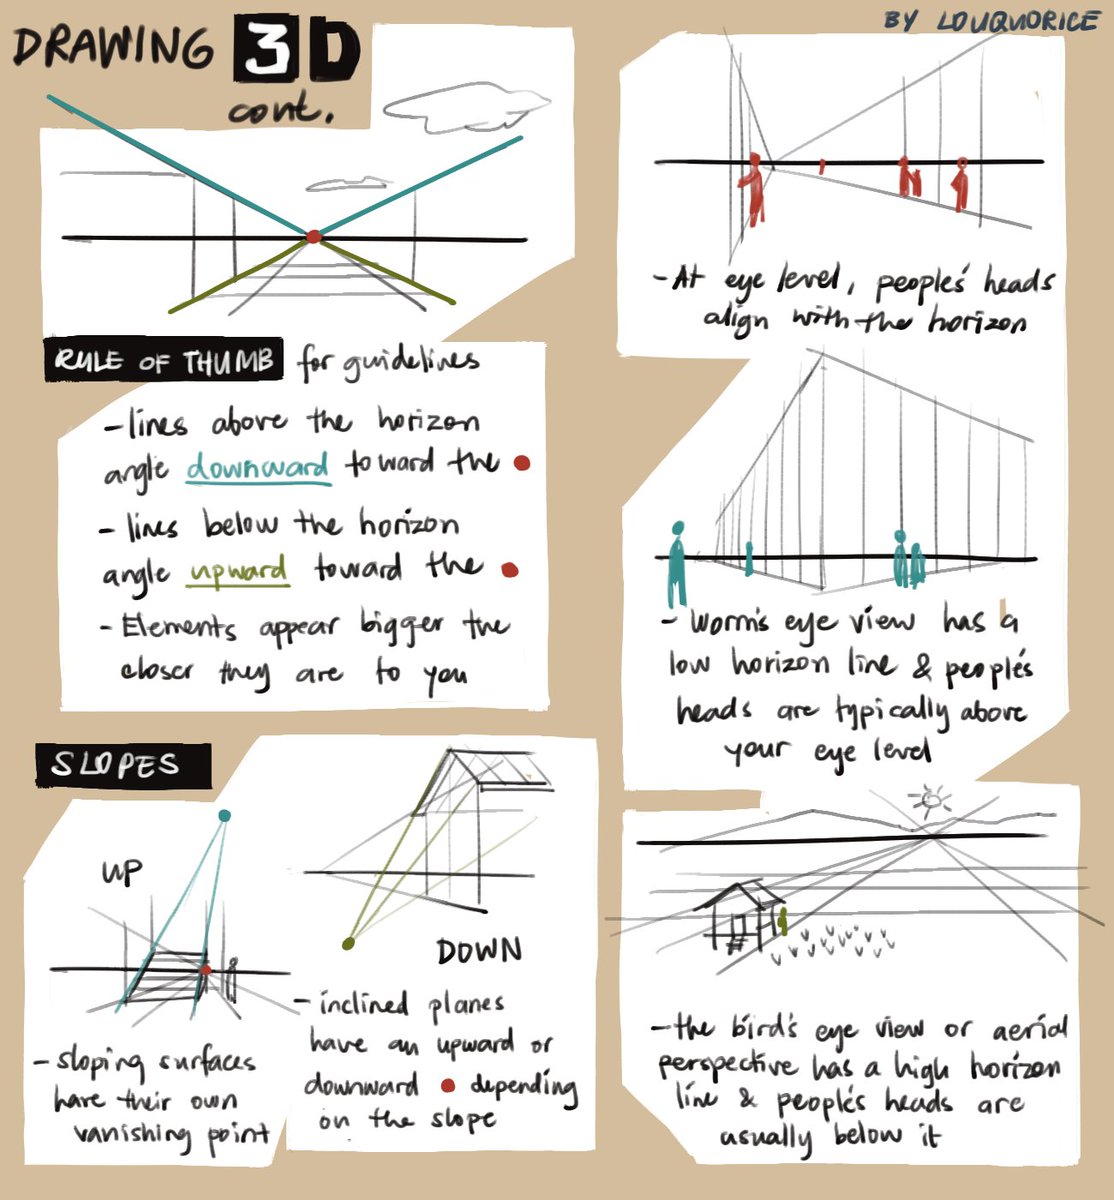 DRAWING 3D
cont.
BY LOUQUORICE
RULE OF THUMB for guidelines
- lines above the horizon
angle downward toward the
- lines below the horizon
angle upward toward the
- Elements appear bigger the
closer they are to you
SLOPES
UP
- sloping surfaces
have their own
vanishing point
DOWN
- inclined planes
have an upward or
downward depending
on the slope
- At eye level, people's heads
align with the horizon
- Worm's eye view has a
low horizon line & people's
heads are typically above
your eye level
- the bird's eye view or aerial
perspective has a high horizon
line & people's heads are
usually below it